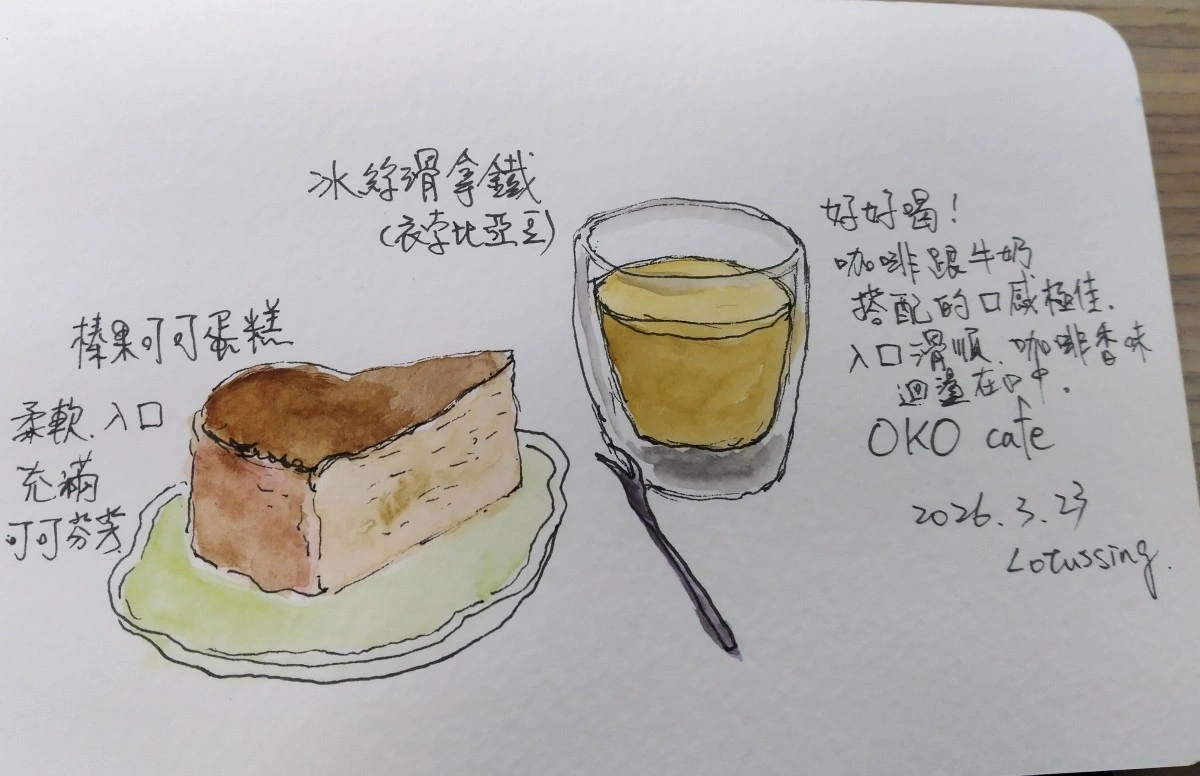 冰絲滑拿鐵
(衣索比亞豆)
榛果可可蛋糕
柔軟、入口
充滿
可可芬芳
好好喝!
咖啡跟牛奶
搭配的口感極佳.
入口滑順、咖啡香味
迴盪在口中.
OKO cafe
2026.3.23
Lotussing.